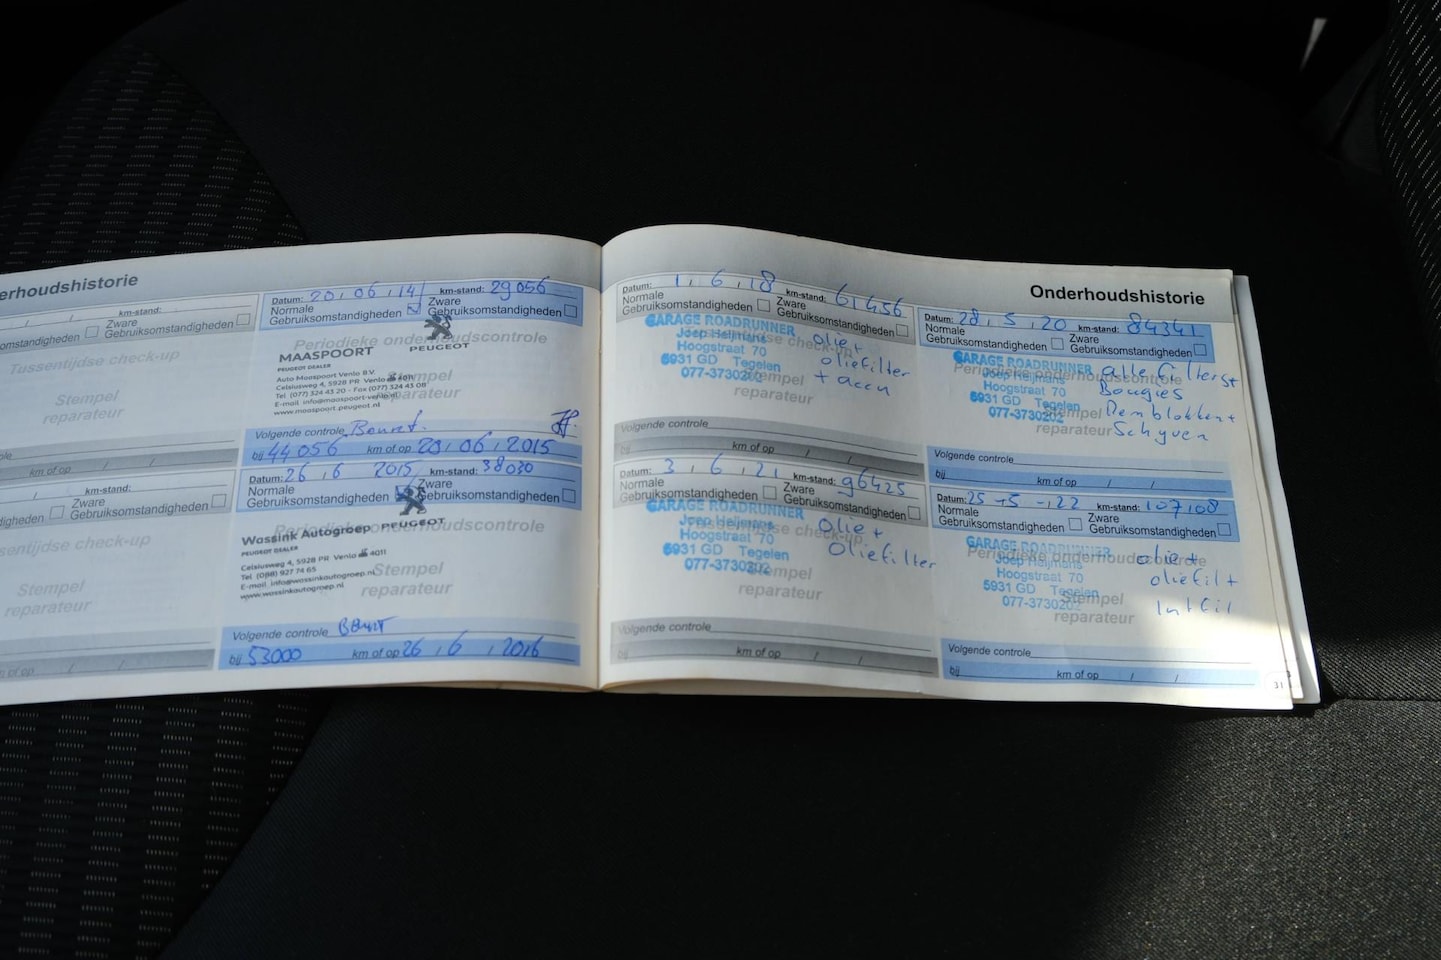 erhoudshistorie
km-stand:
omstandigheden Zware
Gebruiksomstandigheden
Tussentijdse check-up
Stempel
reparateur
km of op / /
km-stand:
Zware
Gebruiksomstandigheden
sentijdse check-up
Stempel
reparateur
km of op / /
Datum: 20, 06, 14 km-stand: 29056
Normale Zware
Gebruiksomstandigheden Gebruiksomstandigheden
Periodieke onderhoudscontrole
PEUGEOT
MAASPOORT
PEUGEOT DEALER
Auto Maaspoort Venlo B.V.
Celsiusweg 4, 5928 PR Venlo
Tel. (077) 324 43 20 - Fax (077) 324 43 08
E-mail info@maaspoort-venlo.nl
www.maaspoort.peugeot.nl
Stempel
reparateur
Volgende controle Beurt.
bij 44 056 km of op 20, 06, 2015
Datum: 26, 6 2015 km-stand: 38030
Normale Zware
Gebruiksomstandigheden Gebruiksomstandigheden
Periodieke onderhoudscontrole
PEUGEOT
Wassink Autogroep
PEUGEOT DEALER
Celsiusweg 4, 5928 PR Venlo 4011
Tel (088) 927 74 65
E-mail info@wassinkautogroep.nl
www.wassinkautogroep.nl
Stempel
reparateur
Volgende controle Beurt
bij 53000 km of op 26, 6, 2016
Datum: 1, 6, 18 km-stand: 61456
Normale Zware
Gebruiksomstandigheden Gebruiksomstandigheden
GARAGE ROADRUNNER
Joep Heijmans
Hoogstraat 70
5931 GD Tegelen
077-3730202
olie +
oliefilter
+ accu
Stempel
reparateur
Volgende controle
bij km of op / /
Datum: 3, 6, 21 km-stand: 96425
Normale Zware
Gebruiksomstandigheden Gebruiksomstandigheden
GARAGE ROADRUNNER
Joep Heijmans
Hoogstraat 70
5931 GD Tegelen
077-3730202
olie +
oliefilter
Stempel
reparateur
Volgende controle
bij km of op / /
Onderhoudshistorie
Datum: 28, 5, 20 km-stand: 84341
Normale Zware
Gebruiksomstandigheden Gebruiksomstandigheden
GARAGE ROADRUNNER
Periodieke onderhoudscontrole
Joep Heijmans
Hoogstraat 70
5931 GD Tegelen
077-3730202
alle filters +
Bougies
Remblokken +
Schyven
Stempel
reparateur
Volgende controle
bij km of op / /
Datum: 25 -5 -22 km-stand: 107108
Normale Zware
Gebruiksomstandigheden Gebruiksomstandigheden
GARAGE ROADRUNNER
Periodieke onderhoudscontrole
Joep Heijmans
Hoogstraat 70
5931 GD Tegelen
077-3730202
olie +
oliefil +
Intfil
Stempel
reparateur
Volgende controle
bij km of op / /
31